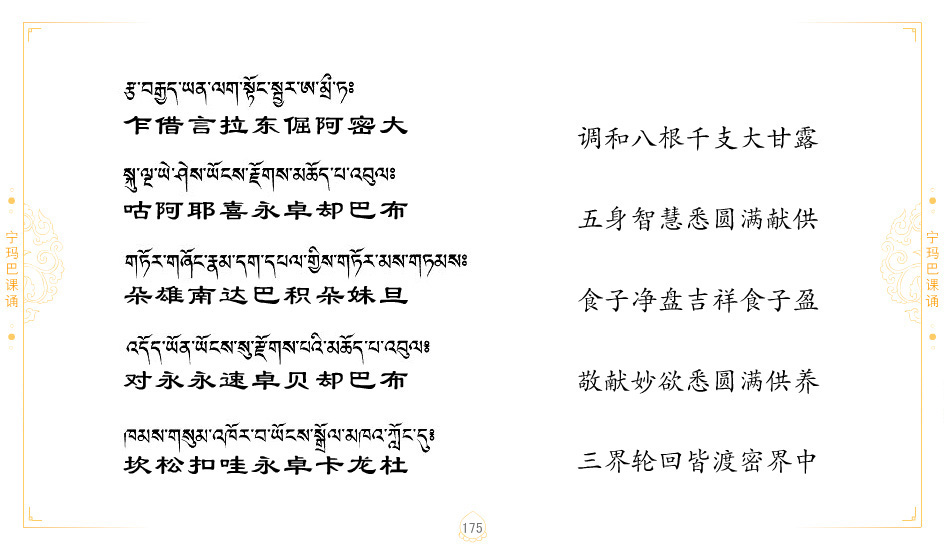 རྩ་བརྒྱད་ཡན་ལག་སྟོང་སྦྱར་ཨ་མྲྀ་ཏ༔
乍借言拉东倔阿密大
调和八根千支大甘露
སྐུ་ལྔ་ཡེ་ཤེས་ཡོངས་རྫོགས་མཆོད་པ་འབུལ༔
咕阿耶喜永卓却巴布
五身智慧悉圆满献供
གཏོར་གཞོང་རྣམ་དག་དཔལ་གྱིས་གཏོར་མས་གཏམས༔
朵雄南达巴积朵妹旦
食子净盘吉祥食子盈
འདོད་ཡོན་ཡོངས་སུ་རྫོགས་པའི་མཆོད་པ་འབུལ༔
对永永速卓贝却巴布
敬献妙欲悉圆满供养
ཁམས་གསུམ་འཁོར་བ་ཡོངས་སྒྲོལ་མཁའ་ཀློང་དུ༔
坎松扣哇永卓卡龙杜
三界轮回皆渡密界中
宁玛巴课诵
宁玛巴课诵
175